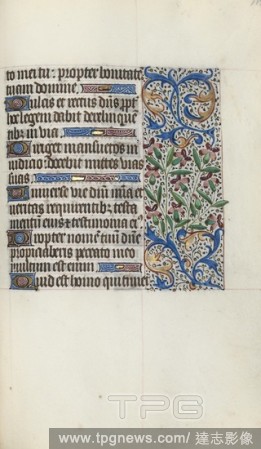 to mei tu: propter bonitate
tuam domine,
Dulcis et rectus dn̄s ppt̄
hoc legem dabit delinque
tibz in via
Diriget mansuetos in
iudicio docebit mites vias
suas
Universe vie dn̄i mia et
veritas requirentibz testa
menti eius et testimonia ei
Propter nomē tuū dn̄e
propiciaberis peccato meo
multum est enim
Quis est homo qui timet
TPG
www.tpgnews.com/ 達志影像